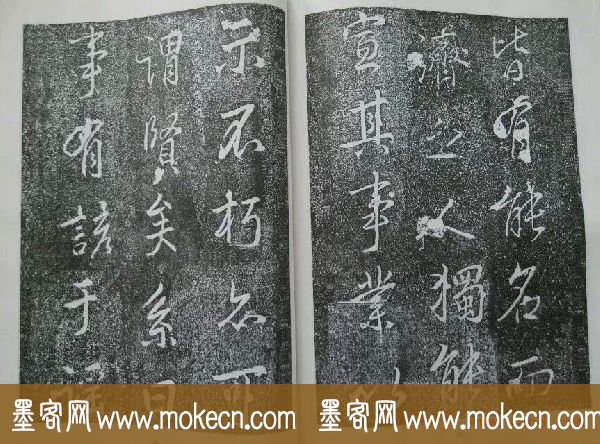 皆有能名而
濟之人獨能
宣其事業
示不朽亦可
謂賢矣系曰
事有諺于
墨客网 www.mokecn.com
墨客网 www.mokecn.com